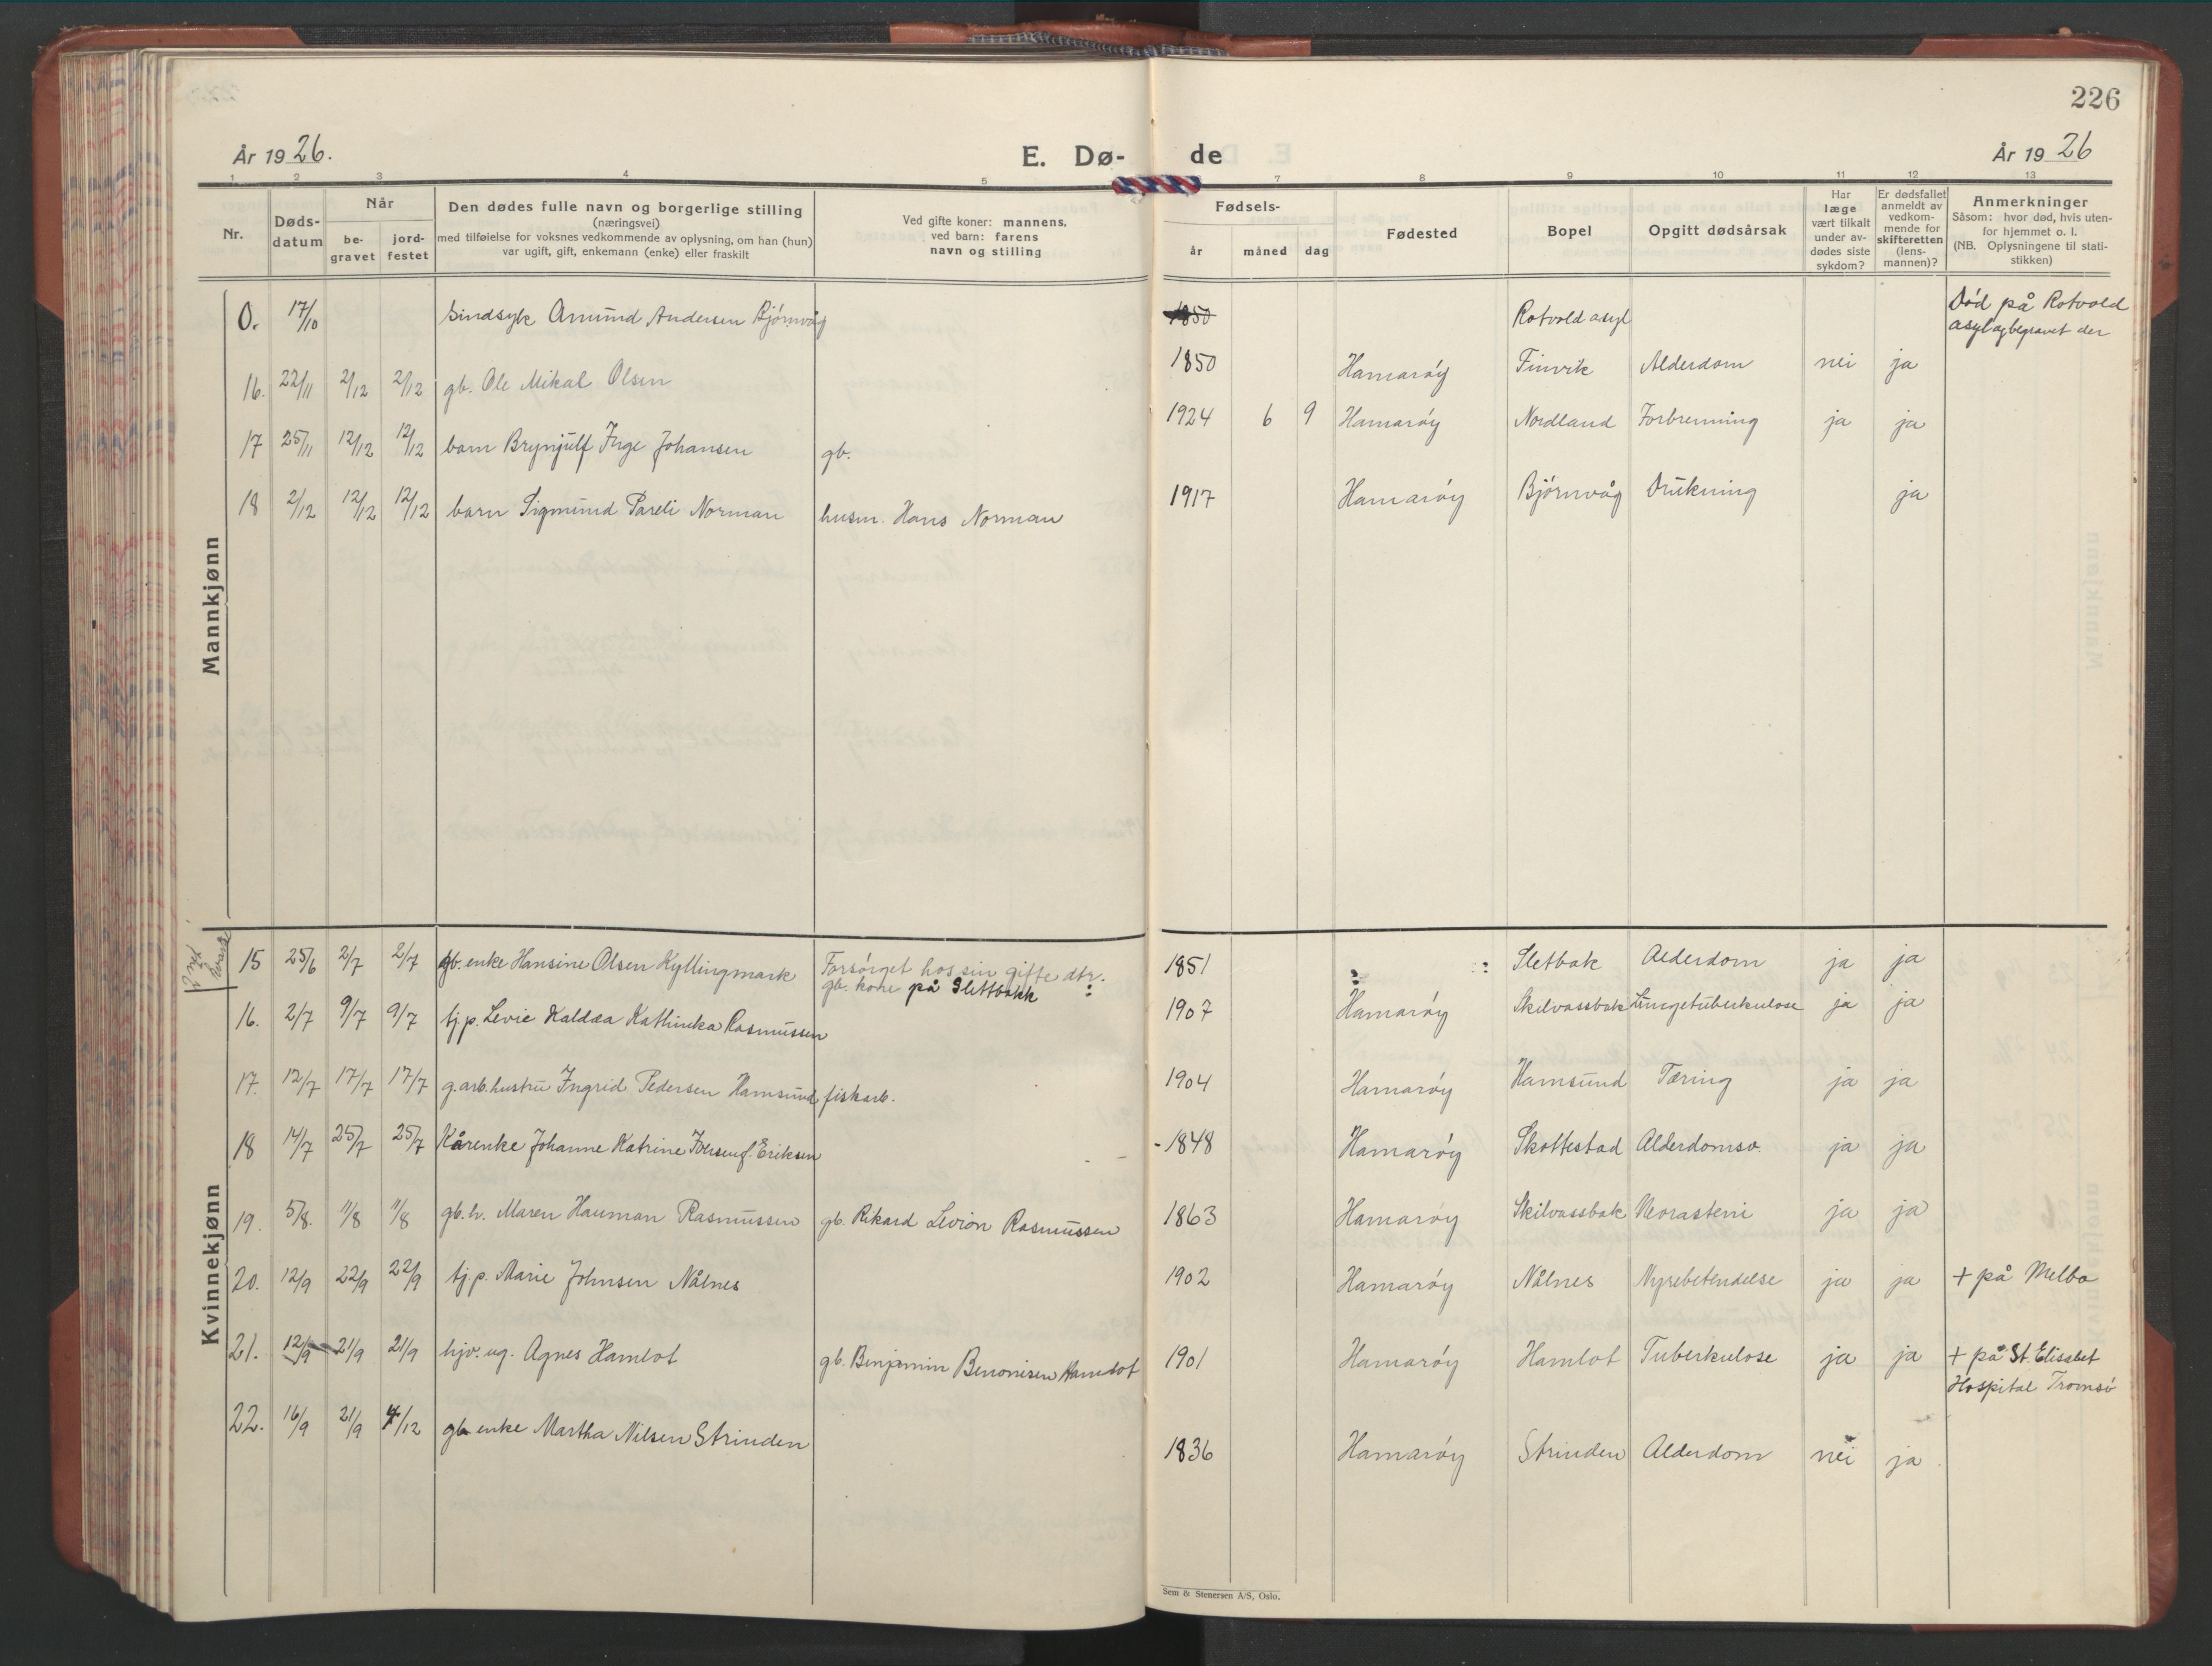 226
År 1926.
E. Dø-
de
År 1926
1 2 3 4 5 7 8 9 10 11 12 13
Nr.
Døds-
datum
Når
be-
gravet
jord-
festet
Den dødes fulle navn og borgerlige stilling
(næringsvei)
med tilføielse for voksnes vedkommende av oplysning, om han (hun)
var ugift, gift, enkemann (enke) eller fraskilt
Ved gifte koner: mannens,
ved barn: farens
navn og stilling
Fødsels-
år måned dag
Fødested
Bopel
Opgitt dødsårsak
Har
læge
vært tilkalt
under av-
dødes siste
sykdom?
Er dødsfallet
anmeldt av
vedkom-
mende for
skifteretten
(lens-
mannen)?
Anmerkninger
Såsom: hvor død, hvis uten-
for hjemmet o. l.
(NB. Oplysningene til stati-
stikken)
Mannkjønn
0. 17/10 Sindsyk Amund Andersen Bjørnvåg 1850 Rotvold asyl Død på Rotvold
asyl og begravet der
16. 22/11 2/12 2/12 gb. Ole Mikal Olsen 1850 Hamarøy Finvik Alderdom nei ja
17 25/11 12/12 12/12 barn Brynjulf Inge Johansen gb. 1924 6 9 Hamarøy Nordland Forbrenning ja ja
18 2/12 12/12 12/12 barn Sigmund Pareli Norman husm. Hans Norman 1917 Hamarøy Bjørnvåg Drukning ja
Kvinnekjønn
15 25/6 2/7 2/7 gb. enke Hansine Olsen Kyllingmark Forsørget hos sin gifte dtr. 1851 Sletbak Alderdom ja ja
gb. kone på Slettbakk
16. 2/7 9/7 9/7 tj.p. Levie Kaldæa Kathinka Rasmussen 1907 Hamarøy Skilvassbak Lungetuberkulose ja ja
17. 12/7 17/7 17/7 g. arb. hustru Ingrid Pedersen Hamsund fiskarb. 1904 Hamarøy Hamsund Tæring ja ja
18 14/7 25/7 25/7 Kårenke Johanne Katrine Iversen f. Eriksen - 1848 Hamarøy Skottestad Alderdomsv. ja ja
19. 5/8. 11/8 11/8 gb. h. Maren Hauman Rasmussen gb. Rikard Levion Rasmussen 1863 Hamarøy Skilvassbak Nevrasteni ja ja
20. 12/9 22/9 22/9 tj. p. Marie Johnsen Nålnes 1902 Hamarøy Nålnes Nyrebetendelse ja ja + på Melbo
21. 12/9 21/9 21/9 hjv. ug. Agnes Hamlot gb. Benjamin Benonisen Hamlot 1901 Hamarøy Hamlot Tuberkulose ja ja + på St. Elisabet
Hospital Tromsø
22. 16/9 21/9 4/12 gb enke Martha Nilsen Strinden 1836 Hamarøy Strinden Alderdom nei ja
Sem & Stenersen A/S, Oslo.